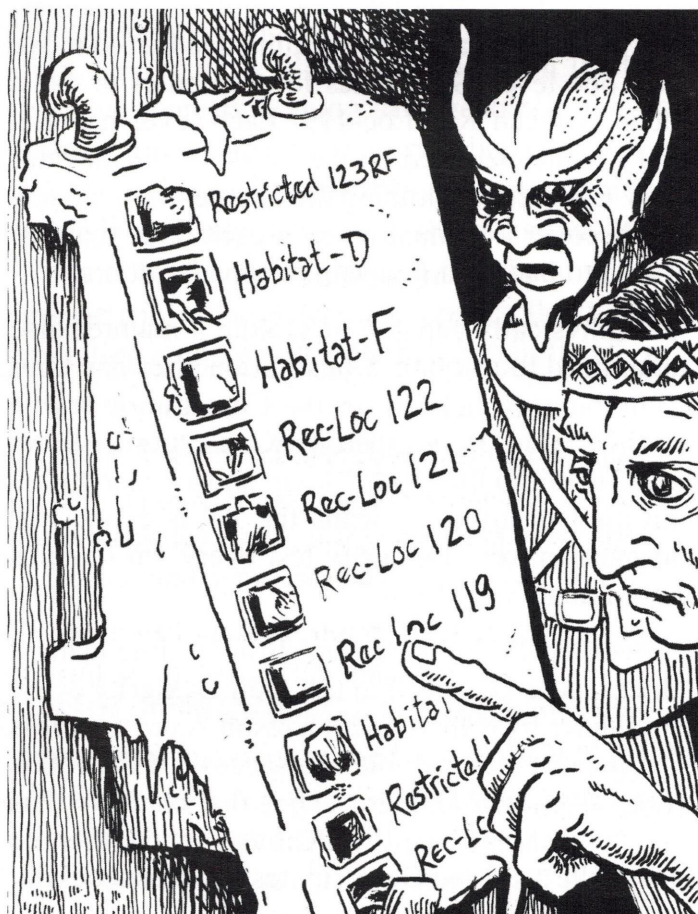 Restricted 123RF
Habitat-D
Habitat-F
Rec-Loc 122
Rec-Loc 121
Rec-Loc 120
Rec Loc 119
Habitat
Restricted
Rec-Lo